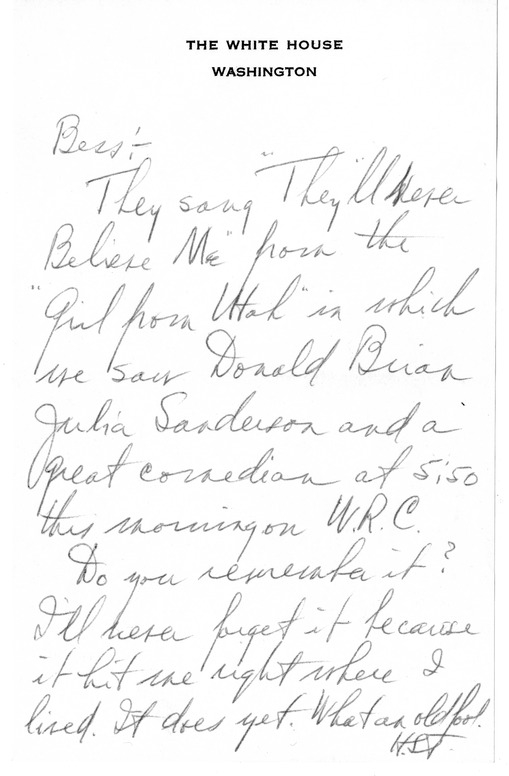 THE WHITE HOUSE
WASHINGTON
Bess:-
They sang "They'll Never
Believe Me" from the
"Girl from Utah" in which
we saw Donald Brian
Julia Sanderson and a
great comedian at 5:50
this morning on W.R.C.
Do you remember it?
I'll never forget it because
it hit me right where I
lived. It does yet. What an old fool.
H.S.T.